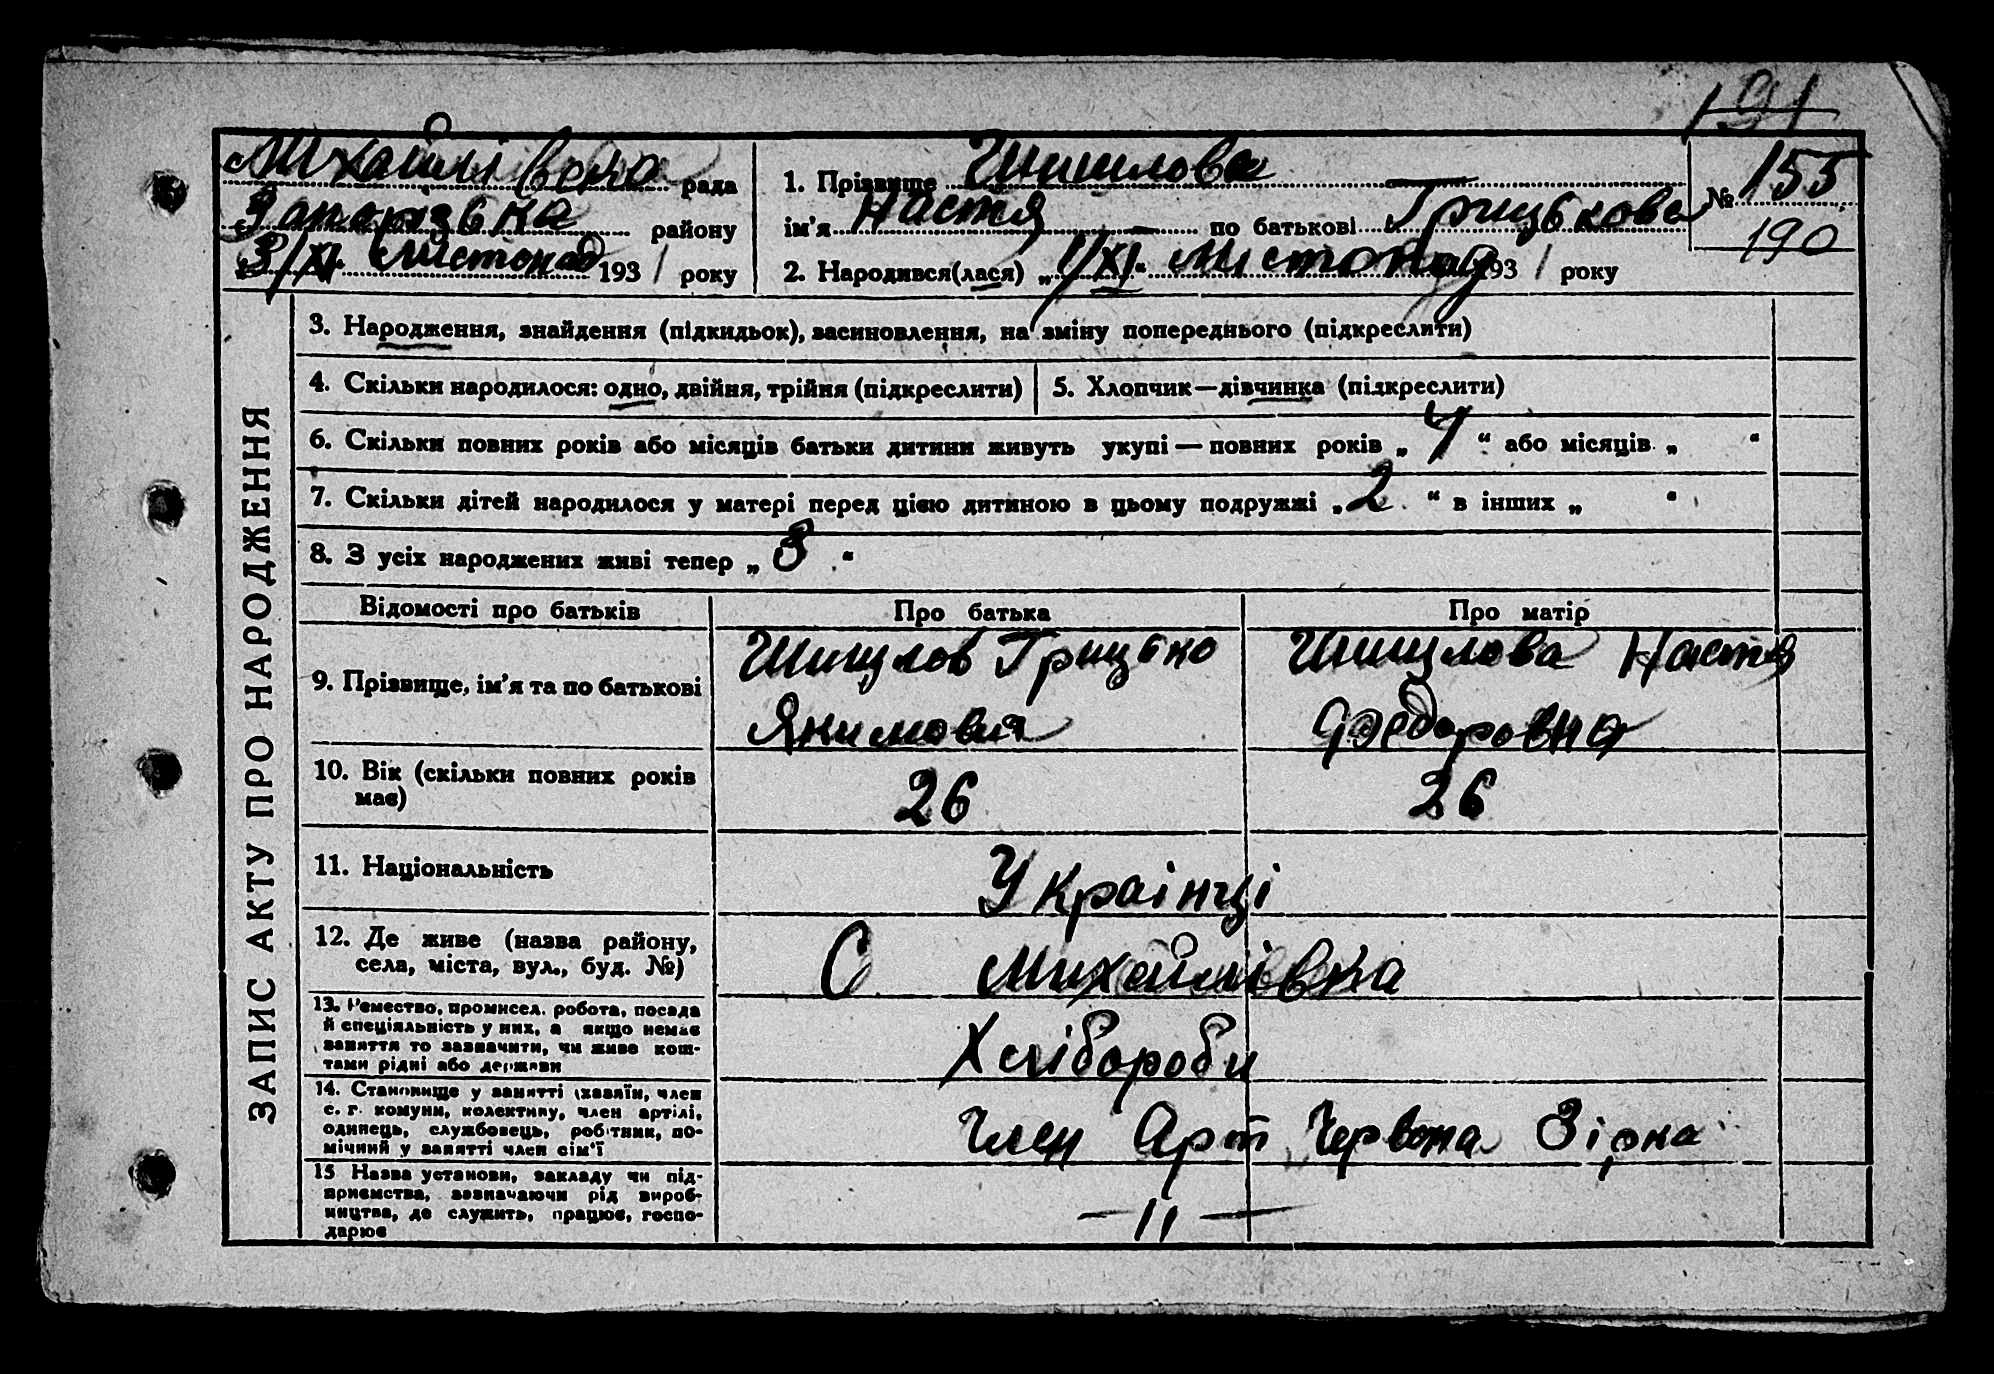 191
Михайлівська рада
Запорізька району
3/XI Листопад 1931 року
1. Прізвище Шишлова
ім'я Настя по батькові Грицькова
2. Народився(лася) „1/XI“ Листопад 1931 року
№ 155
190
ЗАПИС АКТУ ПРО НАРОДЖЕННЯ
3. Народження, знайдення (підкидьок), засиновлення, на зміну попереднього (підкреслити)
4. Скільки народилося: одно, двійня, трійня (підкреслити)
5. Хлопчик—дівчинка (підкреслити)
6. Скільки повних років або місяців батьки дитини живуть укупі — повних років „ 4 “ або місяців „ “
7. Скільки дітей народилося у матері перед цією дитиною в цьому подружжі „ 2 “ в інших „ “
8. З усіх народжених живі тепер „ 3 “
Відомості про батьків
Про батька
Про матір
9. Прізвище, ім'я та по батькові
Шишлов Грицько
Якимович
Шишлова Настя
Федоровна
10. Вік (скільки повних років
має)
26
26
11. Національність
Украінці
12. Де живе (назва району,
села, міста, вул., буд. №)
С Михайлівка
13. Ремество, промисел, робота, посада
й спеціяльність у них, а якщо немає
заняття то зазначити, чи живе кош-
тами рідні або держави
Хлібороби
14. Становище у занятті (хазяїн, член
с. г. комуни, колективу, член артілі,
одинець, службовець, робітник, по-
мічний у занятті член сім'ї
Член Арт Червона Зірка
15 Назва установи, закладу чи під-
приємства, зазначаючи рід вироб-
ництва, де служить, працює, госпо-
дарює
— 11 —